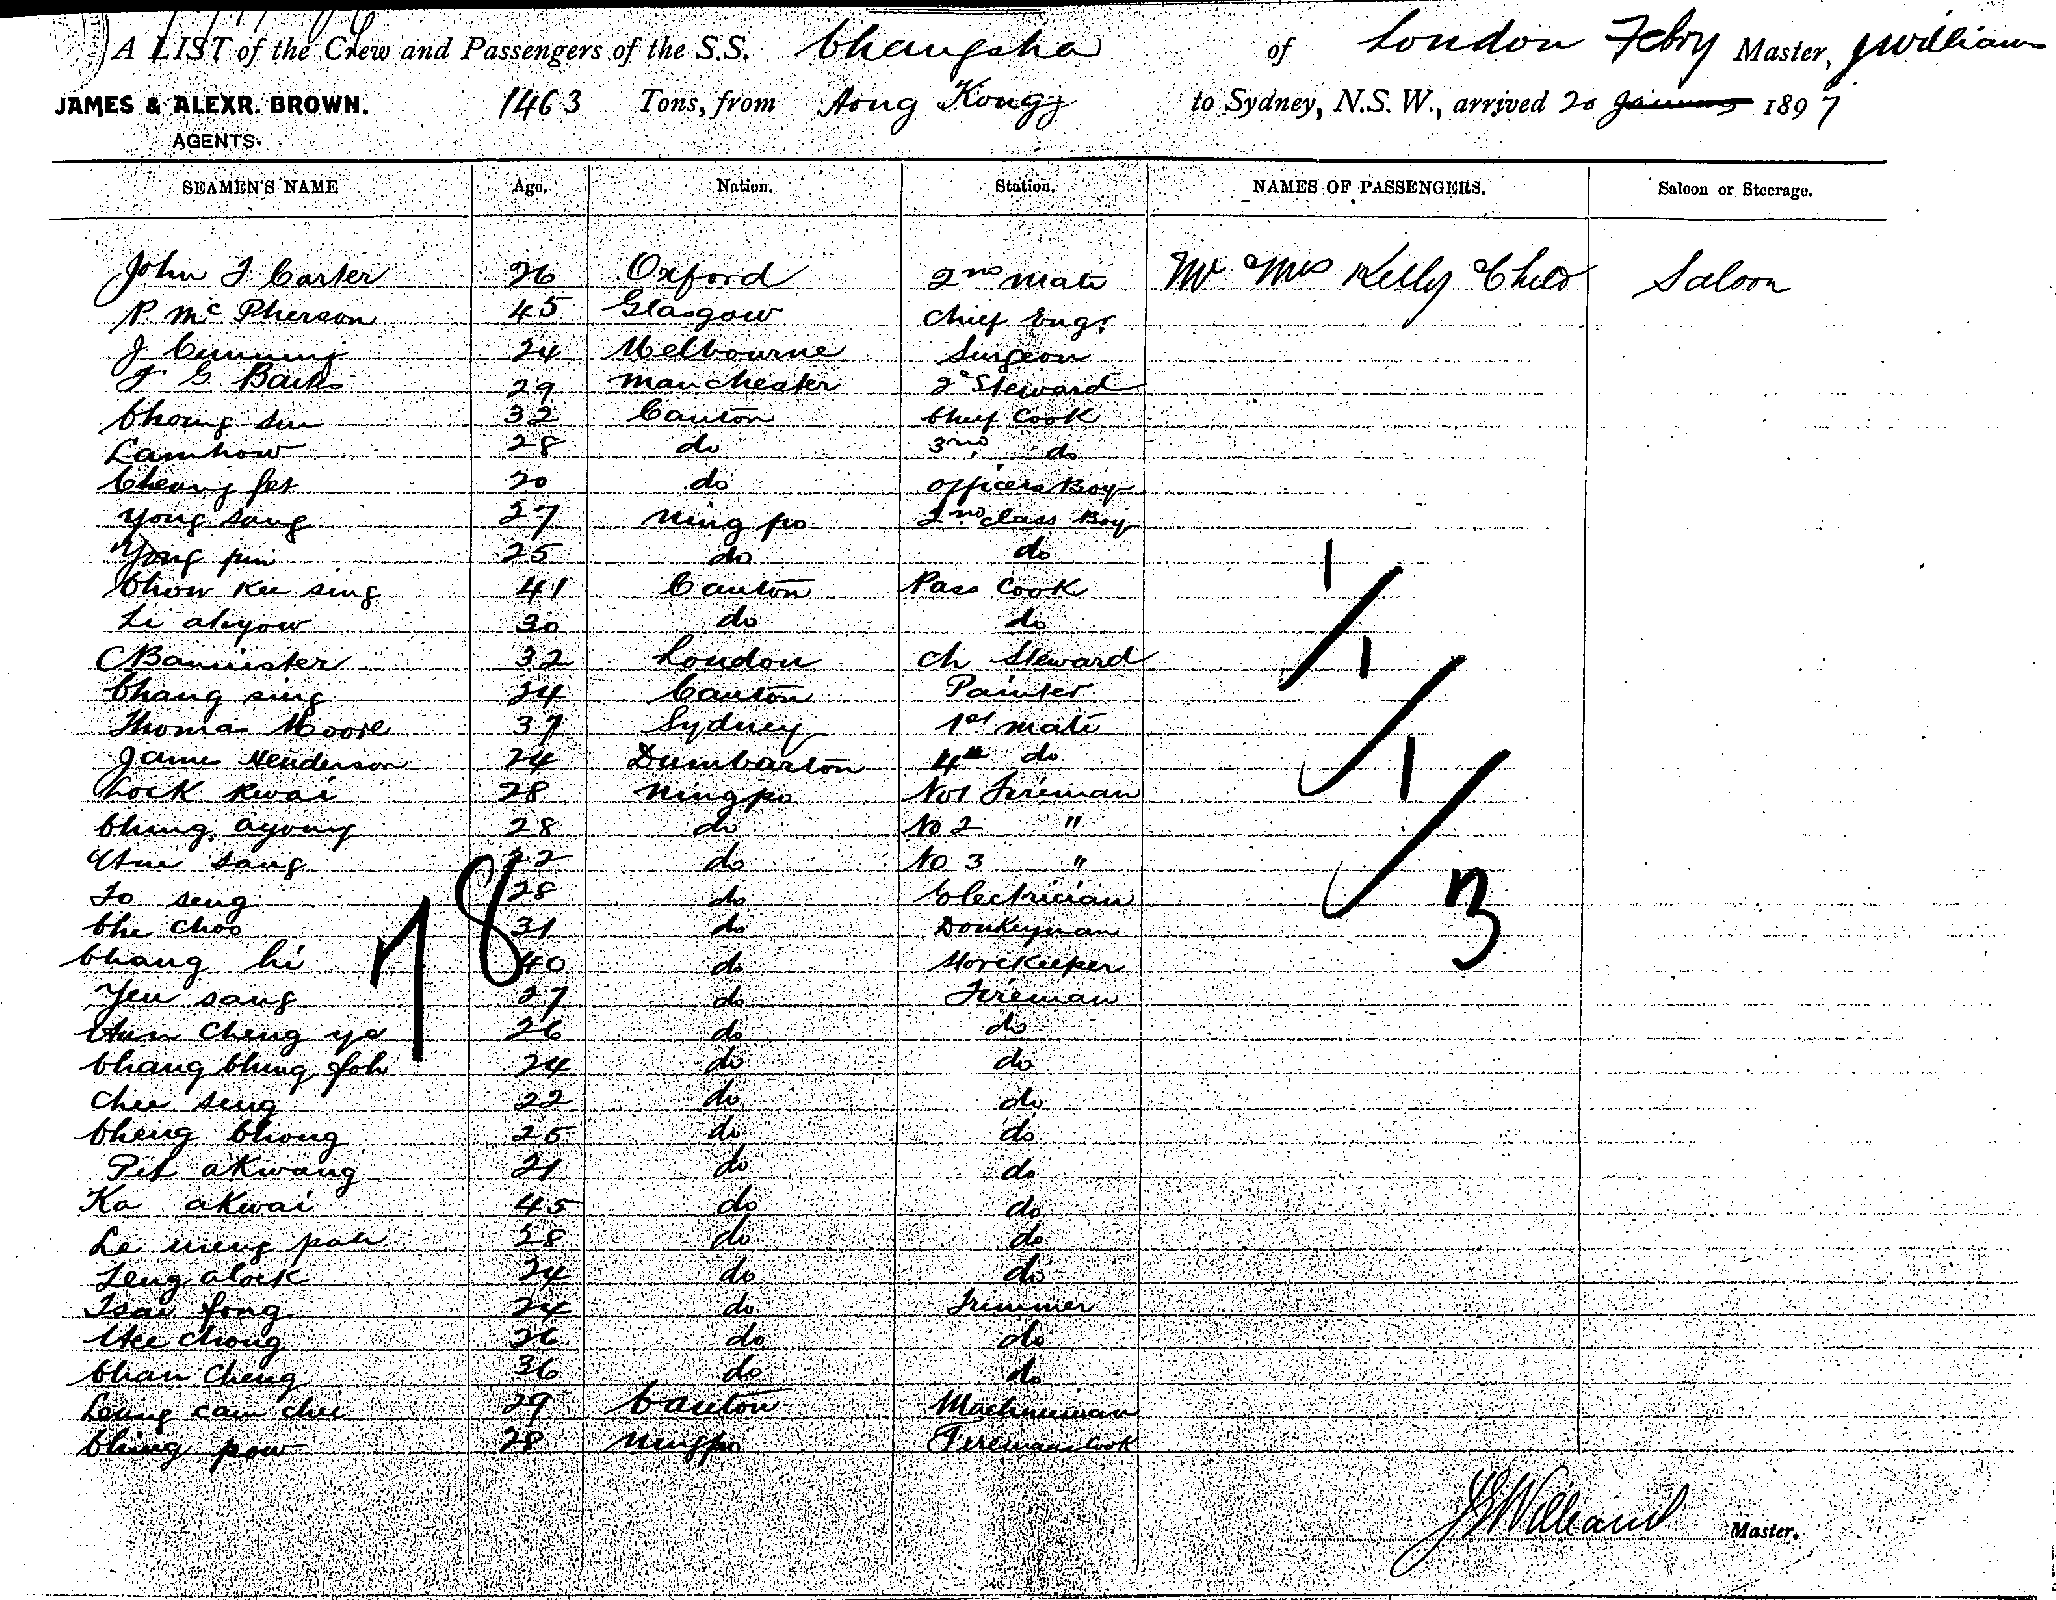 A LIST of the Crew and Passengers of the S.S. Changsha of London Febry Master, J Williams
JAMES & ALEXR. BROWN. 1463 Tons, from Hong Kong to Sydney, N.S.W., arrived 20 January 1897
AGENTS.
SEAMEN'S NAME Age. Nation. Station. NAMES OF PASSENGERS. Saloon or Steerage.
John T Carter 26 Oxford 2nd Mate Mr & Mrs Kelly & Child Saloon
P McPherson 45 Glasgow Chief Engr
J Cumming 24 Melbourne Surgeon
F G Banks 29 Manchester 2d Steward
Choung Sun 32 Canton Chief Cook
Lamhow 28 do 3rd do
Cheong fat 20 do officers Boy
Yong sang 27 Ning po 2nd class Boy
Yong pin 25 do do
Chow Kee sing 41 Canton Pass Cook
Li ahyow 30 do do
C Bannister 32 London Ch Steward
Chang sing 24 Canton Painter
Thomas Moore 37 Sydney 1st mate
James Henderson 24 Dumbarton 4th do
Lock Kwai 28 Ningpo No 1 Fireman
Ching ayoung 28 do No 2 "
sang 22 do No 3 "
Fo seng 28 do Electrician
Che Choo 31 do Donkeyman
Chang hi 40 do Storekeeper
Yeu sang 27 do Fireman
Cheng ya 26 do do
Chang Ching foh 24 do do
Chee seng 22 do do
Cheng Chong 25 do do
Pet akwang 21 do do
Ka akwai 45 do do
Le meng pah 28 do do
Feng alock 24 do do
Tsai fong 24 do Trimmer
Chong 26 do do
Chan Cheng 36 do do
Leung cam chu 29 Canton Machineman
Ching pow 28 Ningpo Firemans Cook
78
1
1
1
3
J E Williams Master.